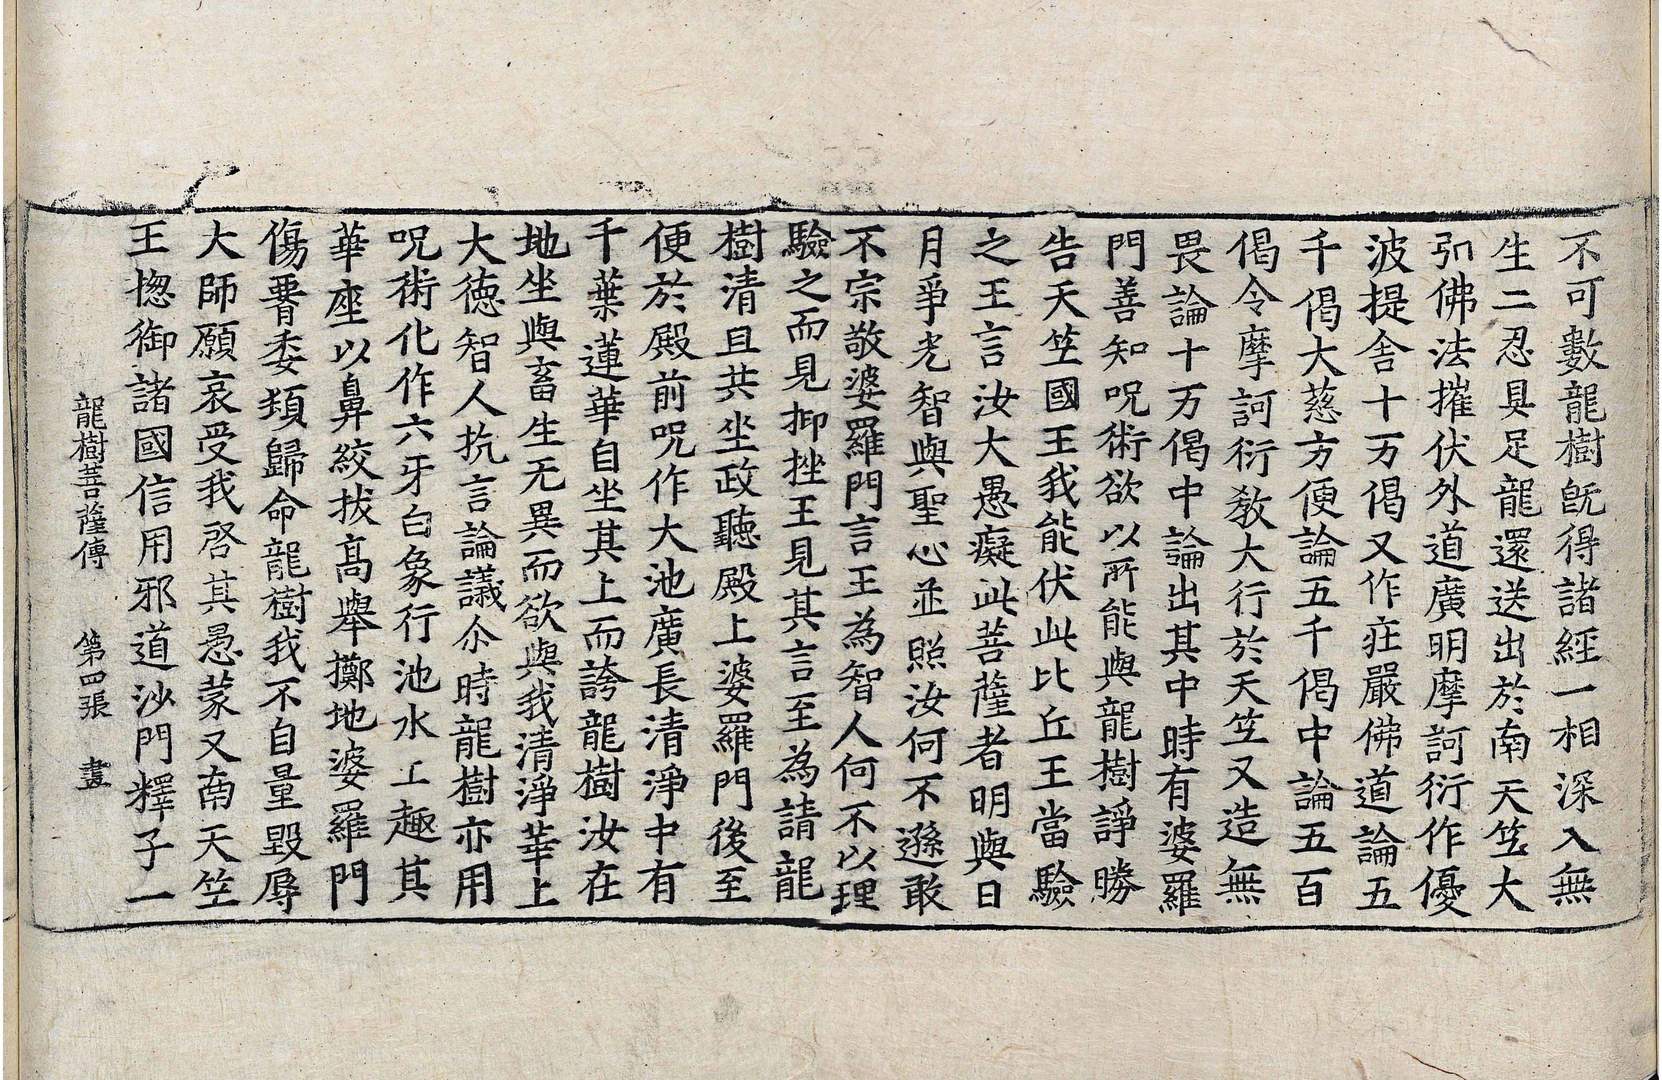 不可數龍樹旣得諸經一相深入無
生二忍具足龍還送出於南天竺大
弘佛法摧伏外道廣明摩訶衍作優
波提舍十万偈又作庄嚴佛道論五
千偈大慈方便論五千偈中論五百
偈令摩訶衍教大行於天竺又造無
畏論十万偈中論出其中時有婆羅
門善知呪術欲以所能與龍樹諍勝
告天竺國王我能伏此比丘王當驗
之王言汝大愚癡此菩薩者明與日
月爭光智與聖心並照汝何不遜敢
不宗敬婆羅門言王為智人何不以理
驗之而見抑挫王見其言至為請龍
樹清旦共坐政聽殿上婆羅門後至
便於殿前呪作大池廣長清淨中有
千葉蓮華自坐其上而誇龍樹汝在
地坐與畜生无異而欲與我清淨華上
大德智人抗言論議尒時龍樹亦用
呪術化作六牙白象行池水上趣其
華座以鼻絞拔高舉擲地婆羅門
傷𦝫委頓歸命龍樹我不自量毀辱
大師願哀受我啓其愚蒙又南天竺
王惣御諸國信用邪道沙門釋子一
龍樹菩薩傳　第四張　畫